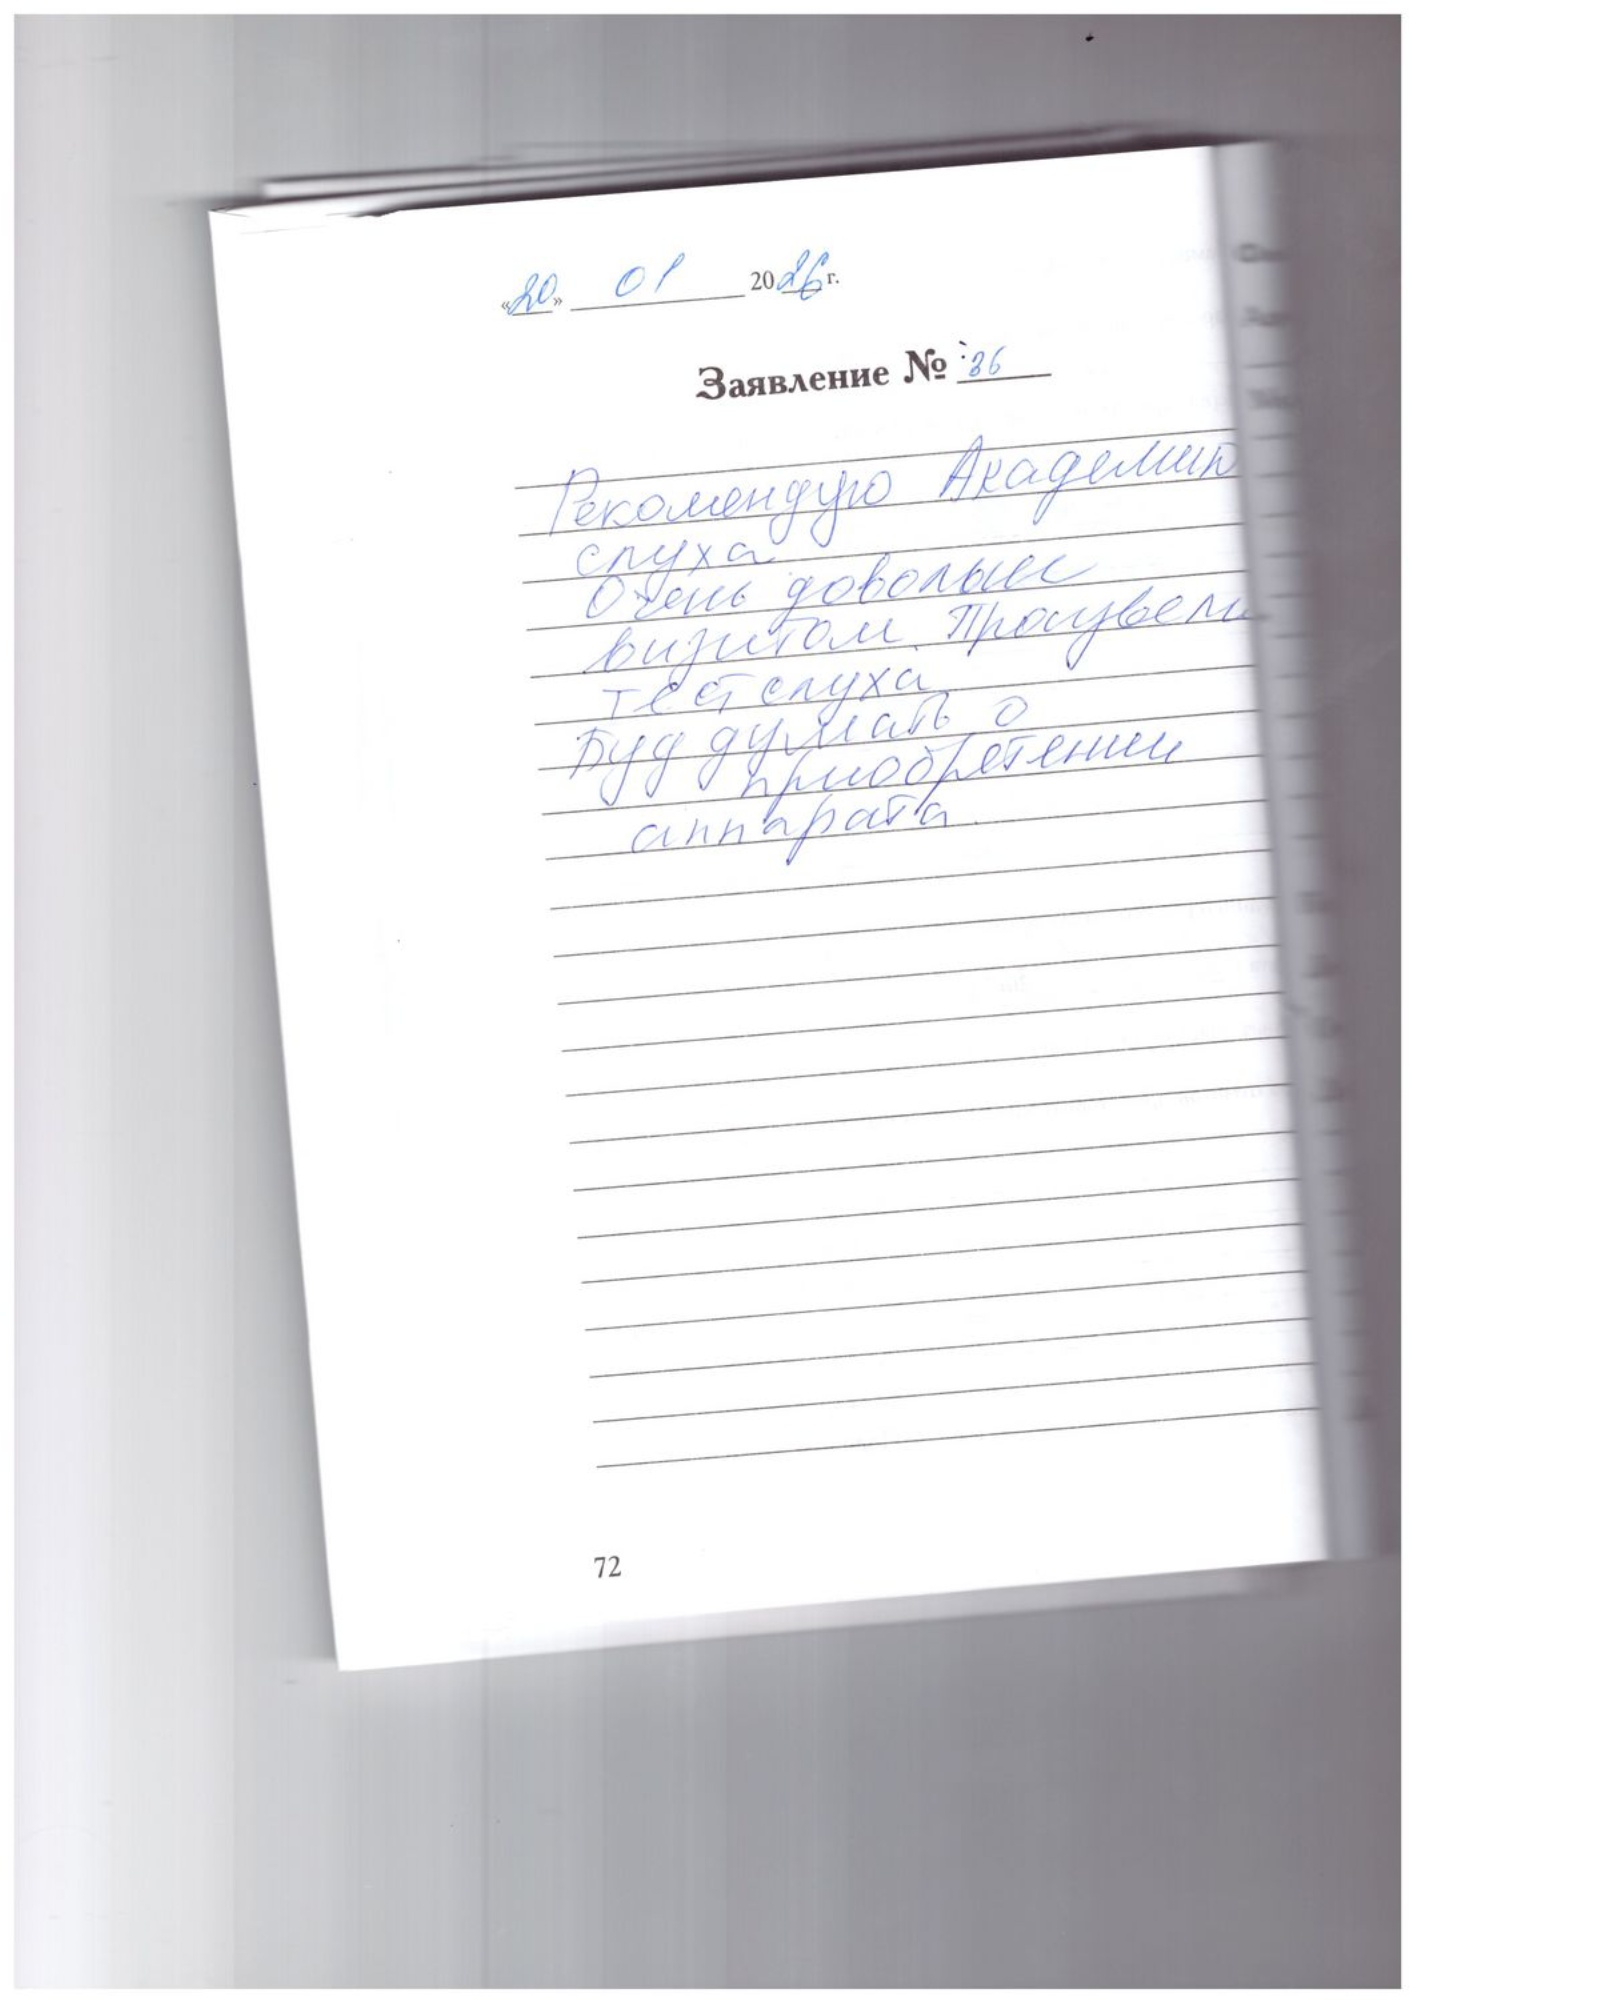 «20» 01 2026 г.
Заявление № 36
Рекомендую Академию
слуха
Очень довольны
визитом. Произвели
тест слуха
Буд думать о
приобретении
аппарата.
72